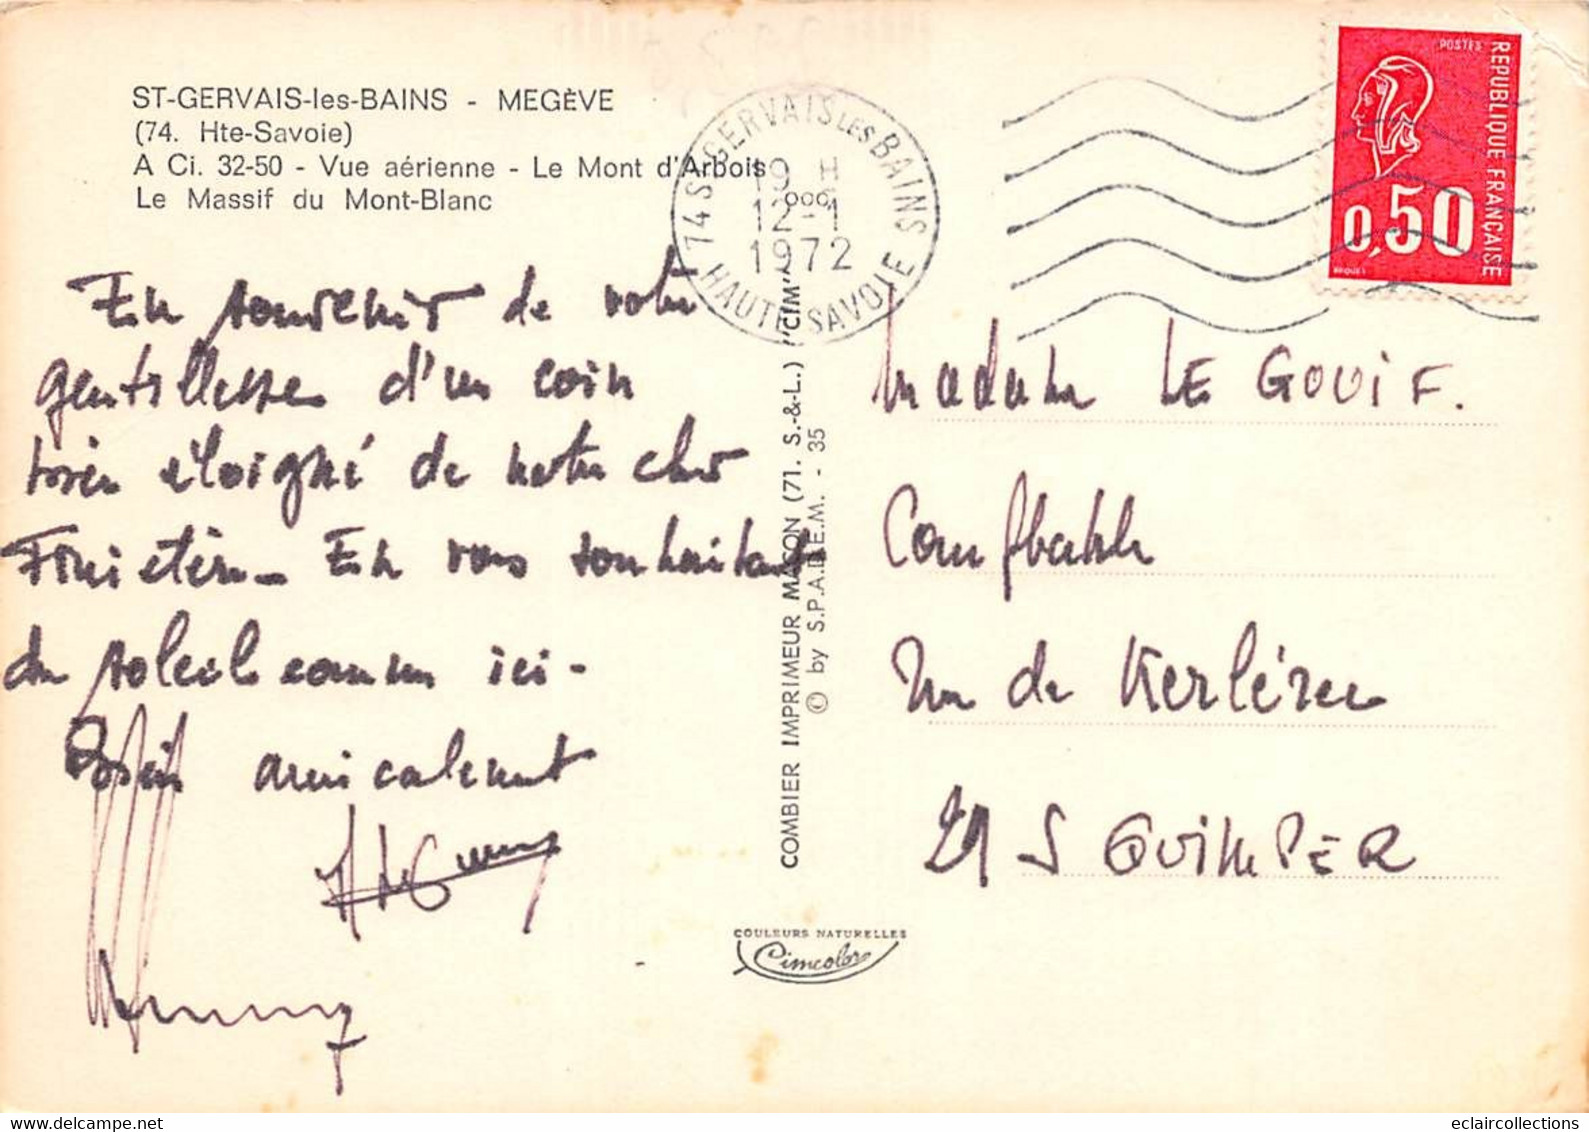 ST-GERVAIS-les-BAINS - MEGÈVE
(74. Hte-Savoie)
A Ci. 32-50 - Vue aérienne - Le Mont d'Arbois
Le Massif du Mont-Blanc
74 ST GERVAIS LES BAINS
19 H
12-1
1972
HAUTE SAVOIE
POSTES
REPUBLIQUE FRANÇAISE
0,50
En souvenir de votre
gentillesse d'un coin
très éloigné de notre cher
Finistère - En vous souhaitant
du soleil comme ici -
amicalement
COMBIER IMPRIMEUR MACON (71. S.-&-L.) "CIM"
© by S.P.A.D.E.M. - 35
Madame LE GOUIF.
Comptable
rue de Kerlérec
29 S QUIMPER
COULEURS NATURELLES
Cimcolor
eclaircollections